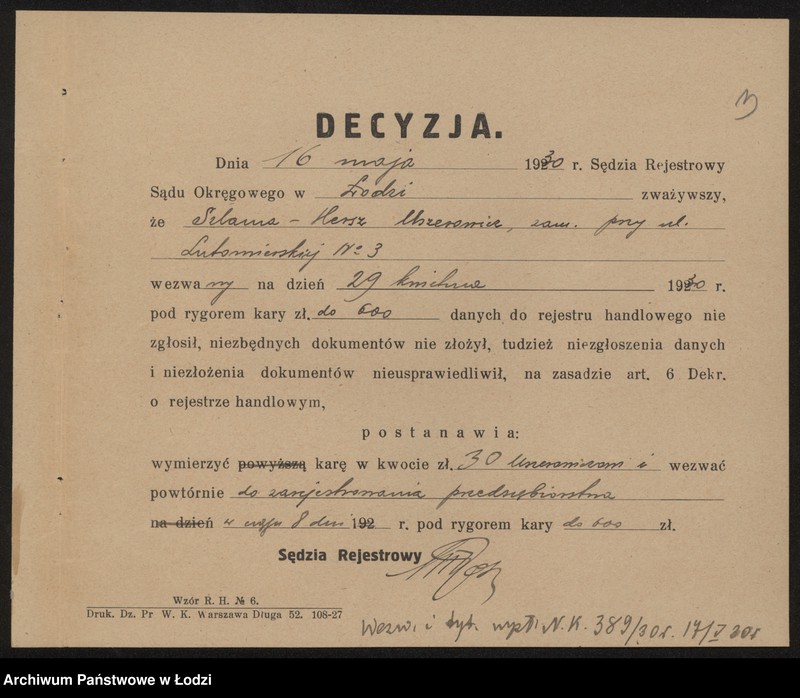 DECYZJA.
Dnia 16 maja 1930 r. Sędzia Rejestrowy
Sądu Okręgowego w Łodzi zważywszy,
że Szlama - Hersz Uszerowicz, zam. przy ul.
Lutomierskiej № 3
wezwany na dzień 29 kwietnia 1930 r.
pod rygorem kary zł. do 600 danych do rejestru handlowego nie
zgłosił, niezbędnych dokumentów nie złożył, tudzież niezgłoszenia danych
i niezłożenia dokumentów nieusprawiedliwił, na zasadzie art. 6 Dekr.
o rejestrze handlowym,
postanawia:
wymierzyć powyższą karę w kwocie zł. 30 Uszerowiczowi i wezwać
powtórnie do zarejestrowania przedsiębiorstwa
na dzień w ciągu 8 dni 192 r. pod rygorem kary do 600 zł.
Sędzia Rejestrowy
Wzór R. H. № 6.
Druk. Dz. Pr W. K. Warszawa Długa 52. 108-27
Wezw. i tyt. N.K. 389/30r. 17/V 30r
Archiwum Państwowe w Łodzi